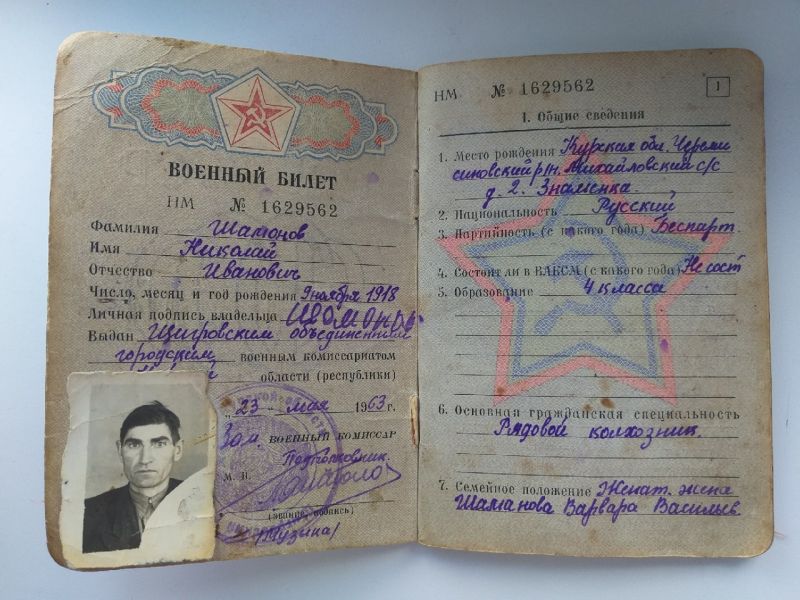 ВОЕННЫЙ БИЛЕТ
НМ № 1629562
Фамилия Шамонов
Имя Николай
Отчество Иванович
Число, месяц и год рождения 9 ноября 1918
Личная подпись владельца Шомонов
Выдан Щигровским объединенным
городским военным комиссариатом
области (республики)
„23 " мая 1963 г.
Зам. ВОЕННЫЙ КОМИССАР
Подполковник
М. П.
(звание, подпись)
НМ № 1629562 1
1. Общие сведения
1. Место рождения Курская обл. Череми
синовский р/н. Михайловский с/с
д. 2. Знаменка.
2. Национальность Русский
3. Партийность (с какого года) Беспарт.
4. Состоял ли в ВЛКСМ (с какого года) Не сост
5. Образование 4 класса
6. Основная гражданская специальность
Рядовой колхозник.
7. Семейное положение Женат. жена
Шаманова Варвара Васильев.